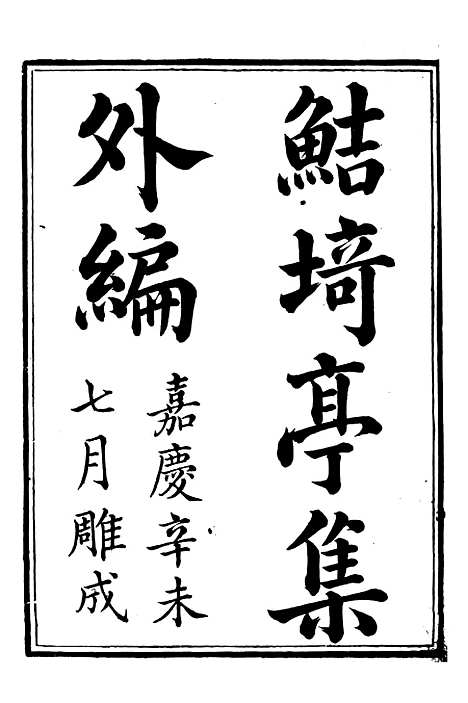 鮚埼亭集
外編
嘉慶辛未
七月雕成